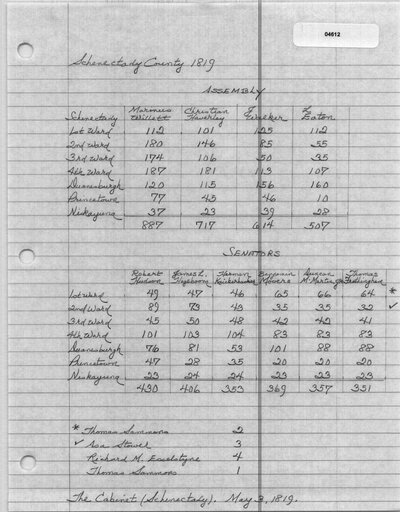 04612
Schenectady County 1819
ASSEMBLY
Marinus Christian J. L.
Schenectady Willett Haverley Walker Eaton
1st Ward 112 101 125 112
2nd Ward 180 146 85 55
3rd Ward 174 106 50 35
4th Ward 187 181 113 107
Duanesburgh 120 115 156 160
Princetown 77 45 46 10
Niskayuna 37 23 39 28
887 717 614 507
SENATORS
Robert James L. Herman Benjamin Duncan Thomas
Hogeboom Knickerbacker Mooers McMartin, Jr.
1st Ward 49 47 46 65 66 64 *
2nd Ward 89 73 43 35 35 32 ✓
3rd Ward 45 50 48 42 42 41
4th Ward 101 103 104 83 83 83
Duanesburgh 76 81 53 101 88 88
Princetown 47 28 35 20 20 20
Niskayuna 23 24 24 23 23 23
430 406 353 369 357 351
* Thomas Sammons 2
✓ Asa Stower 3
Richard M. Esselstyne 4
Thomas Sammons 1
The Cabinet (Schenectady). May 3, 1819.